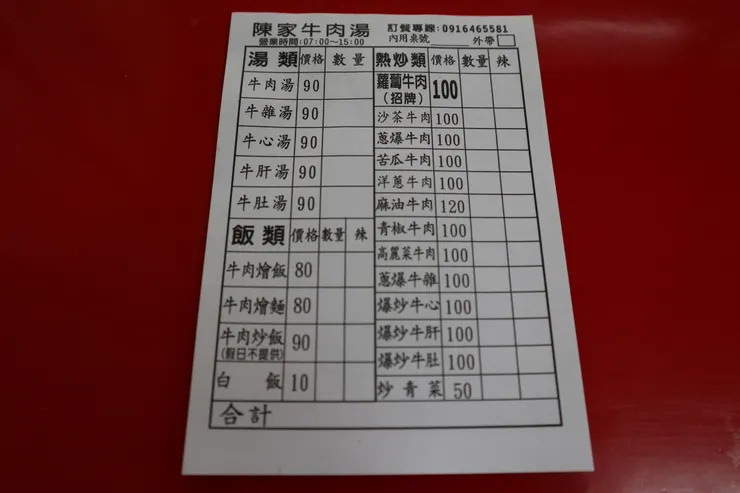 陳家牛肉湯 訂餐專線:0916465581
營業時間:07:00~15:00 內用桌號 外帶
湯類 價格 數量
牛肉湯 90
牛雜湯 90
牛心湯 90
牛肝湯 90
牛肚湯 90
飯類 價格 數量 辣
牛肉燴飯 80
牛肉燴麵 80
牛肉炒飯 90
(假日不提供)
白飯 10
熱炒類 價格 數量 辣
蘿蔔牛肉 100
(招牌)
沙茶牛肉 100
蔥爆牛肉 100
苦瓜牛肉 100
洋蔥牛肉 100
麻油牛肉 120
青椒牛肉 100
高麗菜牛肉 100
蔥爆牛雜 100
爆炒牛心 100
爆炒牛肝 100
爆炒牛肚 100
炒青菜 50
合計